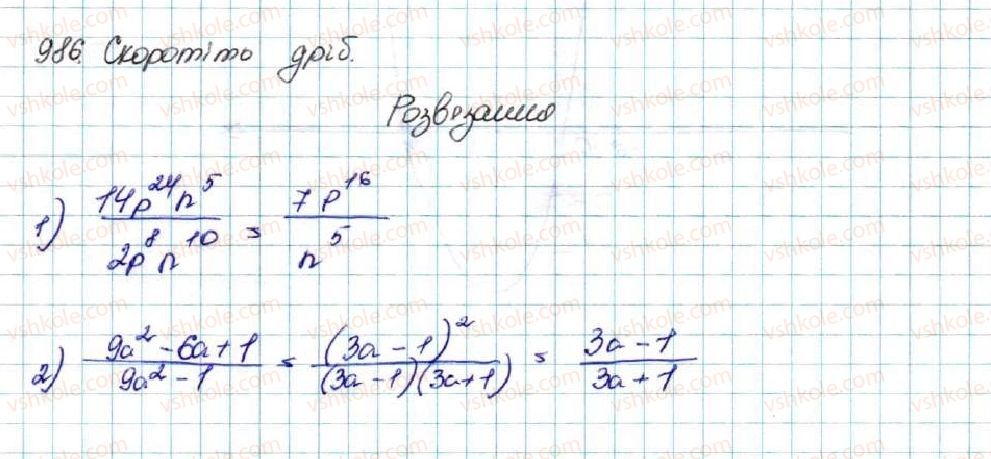 986. Скоротіть дріб.
Розв'язання
1) \frac{14p^{24}n^5}{2p^8n^{10}} = \frac{7p^{16}}{n^5}
2) \frac{9a^2-6a+1}{9a^2-1} = \frac{(3a-1)^2}{(3a-1)(3a+1)} = \frac{3a-1}{3a+1}
vshkole.com